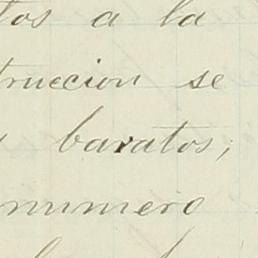 tos a la
truccion se
baratos;
numero